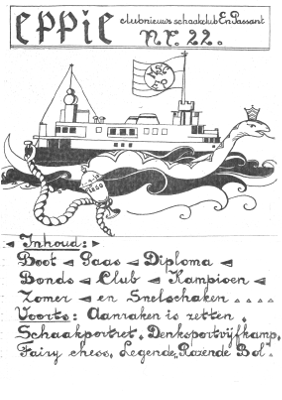 eppie clubnieuws schaakclub En Passant
Nr. 22.
Inhoud:
Boot Paas Diploma
Bonds Club Kampioen
Zomer en Snelschaken . . . .
Voorts: Aanraken is zetten,
Schaakportret, Denksportvijfkamp,
Fairy chess, Legende, Razende Bol.